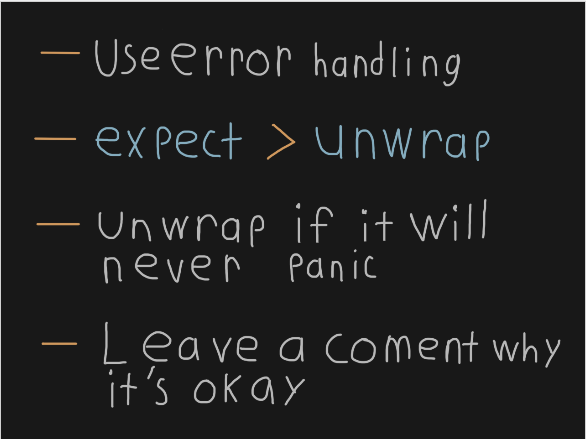 — Use error handling
— expect > unwrap
— Unwrap if it will
never panic
— Leave a coment why
it's okay